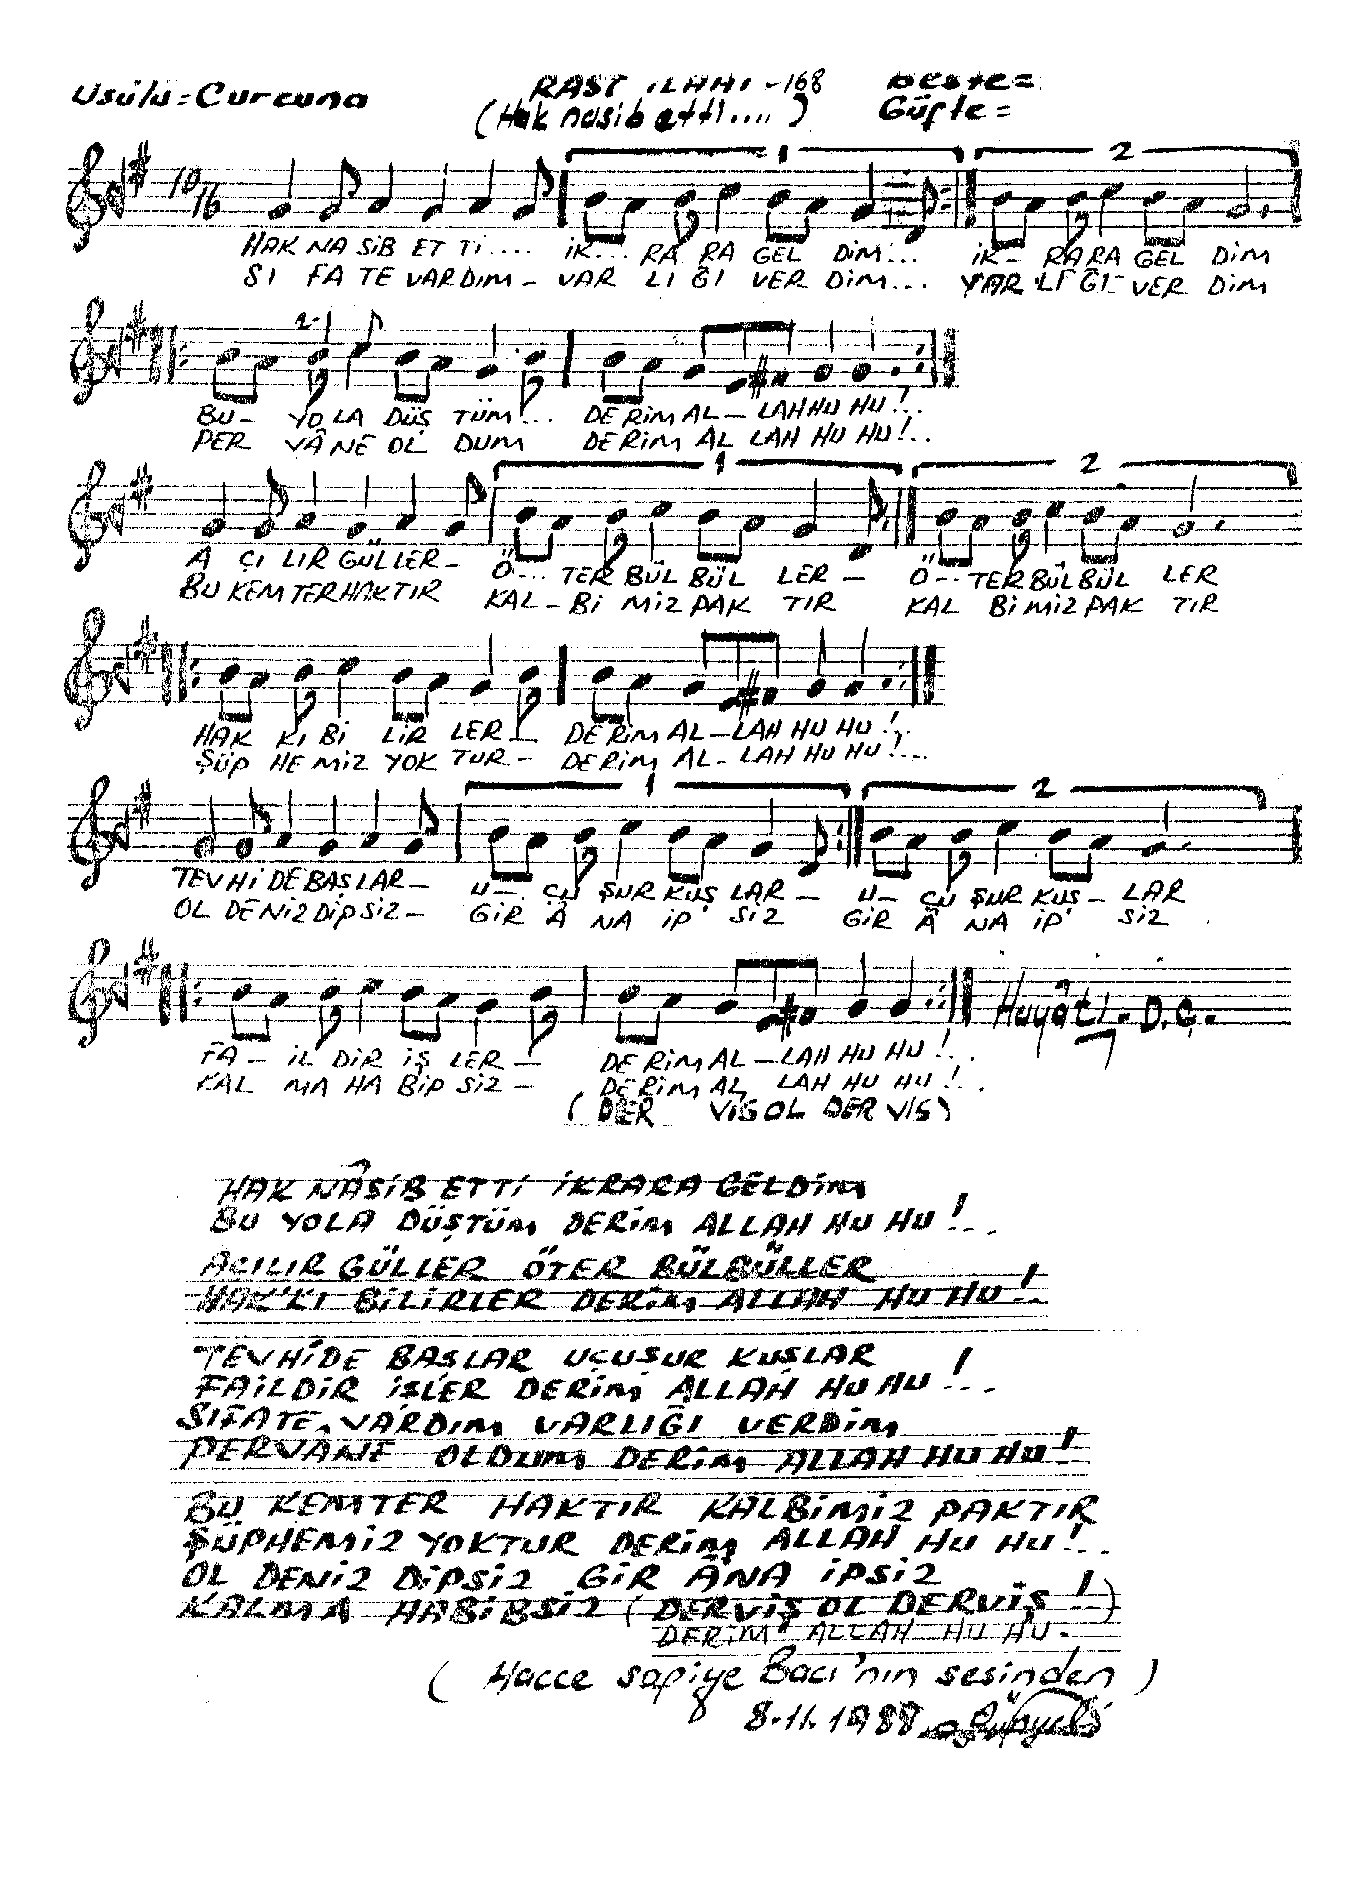 Usûlü = Curcuna
RAST İLAHİ - 168
Beste =
(Hak nasib etti....)
Güfte =
10/16
1
2
HAK NA SİB ET Tİ.... İK... RA RA GEL DİM... İK- RA RA GEL DİM
SI FA TE VARDIM - VAR LI ĞI VER DİM... VAR LI ĞI- VER DİM
BU- YO LA DÜŞ TÜM... DE RİM AL - LAH HU HU!..
PER VÂ NE OL DUM DE RİM AL LAH HU HU!..
1
2
A ÇI LIR GÜL LER- Ö... TER BÜL BÜL LER - Ö-- TER BÜL BÜL LER
BU KEM TER HAK TIR KAL - Bİ MİZ PAK TIR KAL Bİ MİZ PAK TIR
HAK KI Bİ LİR LER - DE RİM AL - LAH HU HU!..
ŞÜP HE MİZ YOK TUR - DE RİM AL - LAH HU HU!...
1
2
TEV Hİ DE BAŞ LAR - U - ÇU ŞUR KUŞ LAR - U - ÇU ŞUR KUŞ - LAR
OL DE NİZ DİP SİZ - GİR Â NA İP SİZ GİR Â NA İP SİZ
FA - İL DİR İŞ LER - DE RİM AL - LAH HU HU!..
KAL MA HA BİP SİZ - DE RİM AL LAH HU HU!..
(DER VİŞ OL DER VİŞ)
Hayâtî. D.Ç.
HAK NÂSİB ETTİ İKRARA GELDİM
BU YOLA DÜŞTÜM DERİM ALLAH HU HU!...
AÇILIR GÜLLER ÖTER BÜLBÜLLER
HAK'KI BİLİRLER DERİM ALLAH HU HU!..
TEVHİDE BAŞLAR UÇUŞUR KUŞLAR
FAİLDİR İŞLER DERİM ALLAH HU HU!...
SIFATE VARDIM VARLIĞI VERDİM
PERVÂNE OLDUM DERİM ALLAH HU HU!.
BU KEMTER HAKTIR KALBİMİZ PAKTIR
ŞÜPHEMİZ YOKTUR DERİM ALLAH HU HU!...
OL DENİZ DİPSİZ GİR ÂNA İPSİZ
KALMA HABİBSİZ (DERVİŞ OL DERVİŞ!)
DERİM ALLAH HU HU.
(Hacce safiye Bacı'nın sesinden)
8.11.1988